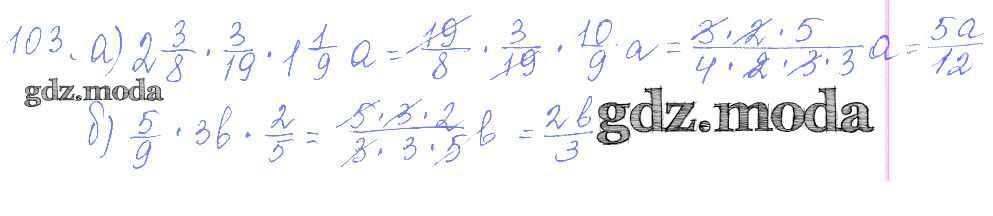 103. а) 2 3/8 · 3/19 · 1 1/9 a = 19/8 · 3/19 · 10/9 · a = 3 · 2 · 5 / 4 · 2 · 3 · 3 a = 5a/12
gdz.moda
б) 5/9 · 3b · 2/5 = 5 · 3 · 2 / 3 · 3 · 5 b = 2b/3
gdz.moda